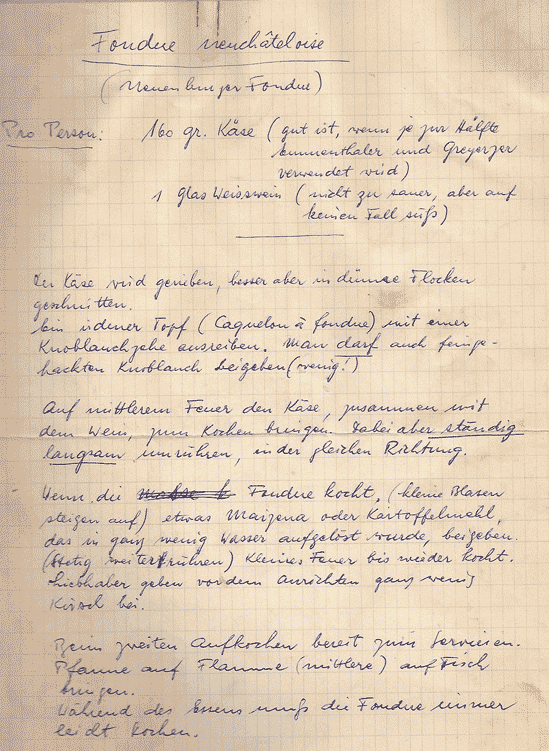 Fondue neuchâteloise
(Neuenburger Fondue)
Pro Person: 160 gr. Käse (gut ist, wenn je zur Hälfte
Emmenthaler und Greyerzer
verwendet wird)
1 Glas Weisswein (nicht zu sauer, aber auf
keinen Fall süß)
Der Käse wird gerieben, besser aber in dünne Flocken
geschnitten.
Ein irdener Topf (Caquelon à fondue) mit einer
Knoblauchzehe ausreiben. Man darf auch feinge-
hackten Knoblauch beigeben (wenig!)
Auf mittlerem Feuer den Käse, zusammen mit
dem Wein, zum Kochen bringen. Dabei aber ständig
langsam umrühren, in der gleichen Richtung.
Wenn die Fondue kocht, (kleine Blasen
steigen auf) etwas Maizena oder Kartoffelmehl,
das in ganz wenig Wasser aufgelöst wurde, beigeben.
(Stetig weiterrühren) Kleines Feuer bis wieder kocht.
Liebhaber geben vor dem Anrichten ganz wenig
Kirsch bei.
Beim zweiten Aufkochen bereit zum Servieren.
Pfanne auf Flamme (mittlere) auf Tisch
bringen.
Während des Essens muß die Fondue immer
leicht kochen.